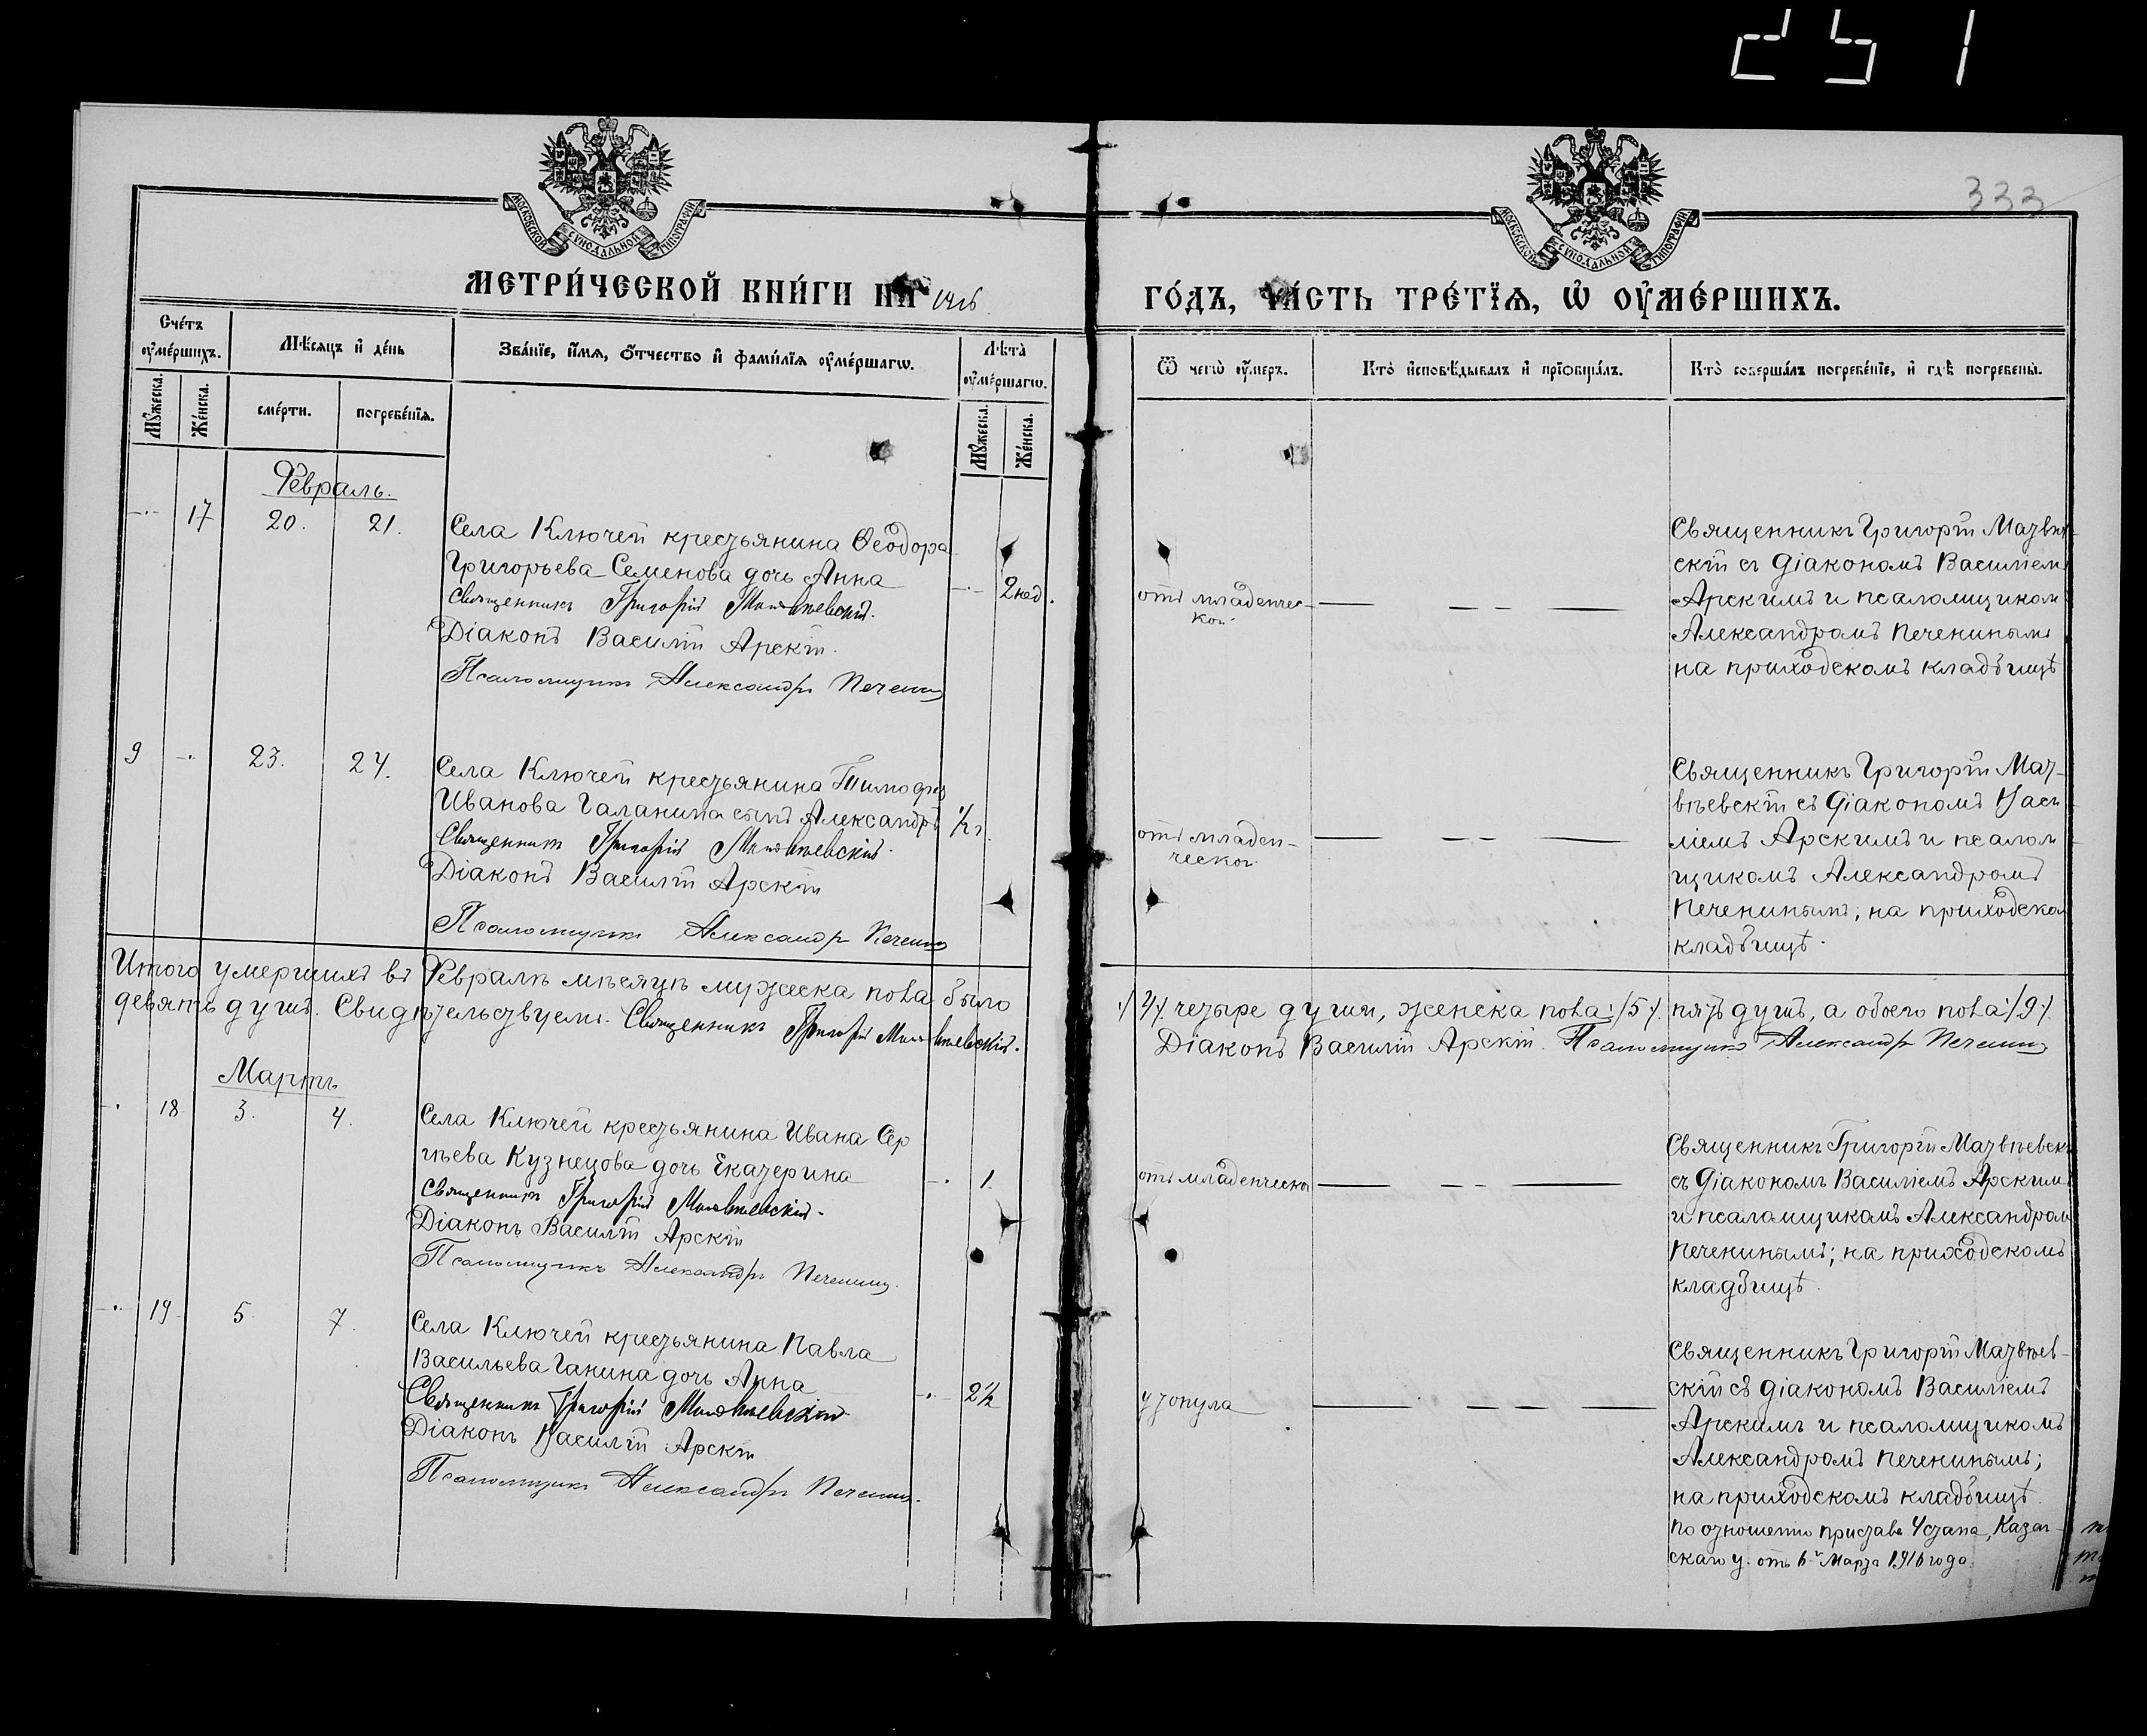 251
333
МОСКОВСКОЙ СѴНОДАЛЬНОЙ ТИПОГРАФІИ
МОСКОВСКОЙ СѴНОДАЛЬНОЙ ТИПОГРАФІИ
МЕТРИ́ЧЕСКОЙ КНИ́ГИ НА 1916
ГО́ДЪ, ЧА́СТЬ ТРЕ́ТЇѦ, Ѡ҆ ОУ҆МЕ́РШИХЪ.
Сче́тъ оу҆ме́ршихъ.
Мѣ́сяцъ и҆ де́нь
Зва́нїе, и҆́мя, ѻ҆́тчество и҆ фами́лїя оу҆ме́ршагѡ.
Лѣта̀ оу҆ме́ршагѡ.
Мꙋ́жеска.
Же́нска.
сме́рти.
погребе́нїя.
Мꙋ́жеска.
Же́нска.
Ѿ чегѡ̀ оу҆́меръ.
Кто̀ и҆сповѣ́дывалъ и҆ прїѻбща́лъ.
Кто̀ соверша́лъ погребе́нїе, и҆ гдѣ̀ погребены̀.
Февраль.
17 20. 21.
Села Ключей крестьянина Ѳеодора
Григорьева Семенова дочь Анна
Священникъ Григорій Матвѣевскій.
Діаконъ Василій Арскій.
Псаломщикъ Александръ Печенинъ
2 нед.
отъ младенчес-
кой
Священникъ Григорій Матвѣев-
скій съ діакономъ Василіемъ
Арскимъ и псаломщиком
Александромъ Печенинымъ
на приходскомъ кладбищѣ
9 23. 24.
Села Ключей крестьянина Тимофея
Иванова Галанина сынъ Александръ
Священникъ Григорій Матвѣевскій.
Діаконъ Василій Арскій
Псаломщикъ Александръ Печенинъ
1/2
отъ младен-
ческой
Священникъ Григорій Мат-
вѣевскій съ діакономъ Васи-
ліемъ Арскимъ и псалом
щикомъ Александромъ
Печенинымъ; на приходском
кладбищѣ.
Итого умершихъ въ Февралѣ мѣсяцѣ мужеска пола было
:/4/. четыре души, женска пола :/5/. пять душъ, а обоего пола :/9/.
девять душъ. Свидѣтельствуемъ. Священникъ Григорій Матвѣевскій.
Діаконъ Василій Арскій. Псаломщикъ Александръ Печенинъ
Мартъ
18 3. 4.
Села Ключей крестьянина Ивана Сер
гѣева Кузнецова дочь Екатерина
Священникъ Григорій Матвѣевскій.
Діаконъ Василій Арскій
Псаломщикъ Александръ Печенинъ.
1.
отъ младенческой
Священникъ Григорій Матвѣевскій
съ діакономъ Василіемъ Арскимъ
и псаломщикомъ Александром
Печенинымъ; на приходскомъ
кладбищѣ.
19. 5. 7.
Села Ключей крестьянина Павла
Васильева Ганина дочь Анна
Священникъ Григорій Матвѣевскій
Діаконъ Василій Арскій
Псаломщикъ Александръ Печенинъ.
2 1/2
утонула
Священникъ Григорій Матвѣев-
скій съ діакономъ Василіемъ
Арскимъ и псаломщикомъ
Александромъ Печенинымъ;
на приходскомъ кладбищѣ.
По отношенію пристава 4 стана, Казан-
скаго у. отъ 6 Марта 1916 года.